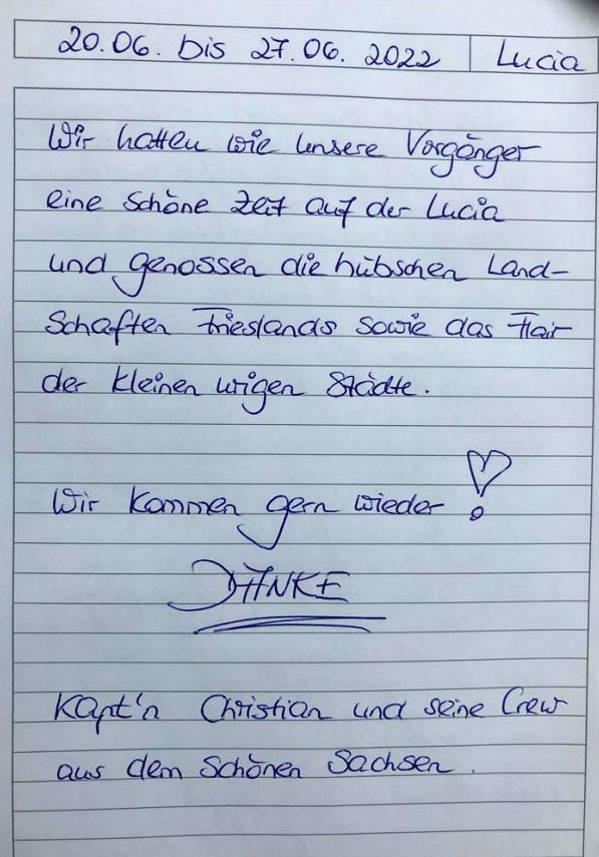 20.06. bis 27.06. 2022 Lucia
Wir hatten wie unsere Vorgänger
eine schöne Zeit auf der Lucia
und genossen die hübschen Land-
schaften Frieslands sowie das Flair
der kleinen urigen Städte.
Wir kommen gern wieder !
DANKE
Kapt'n Christian und seine Crew
aus dem schönen Sachsen.